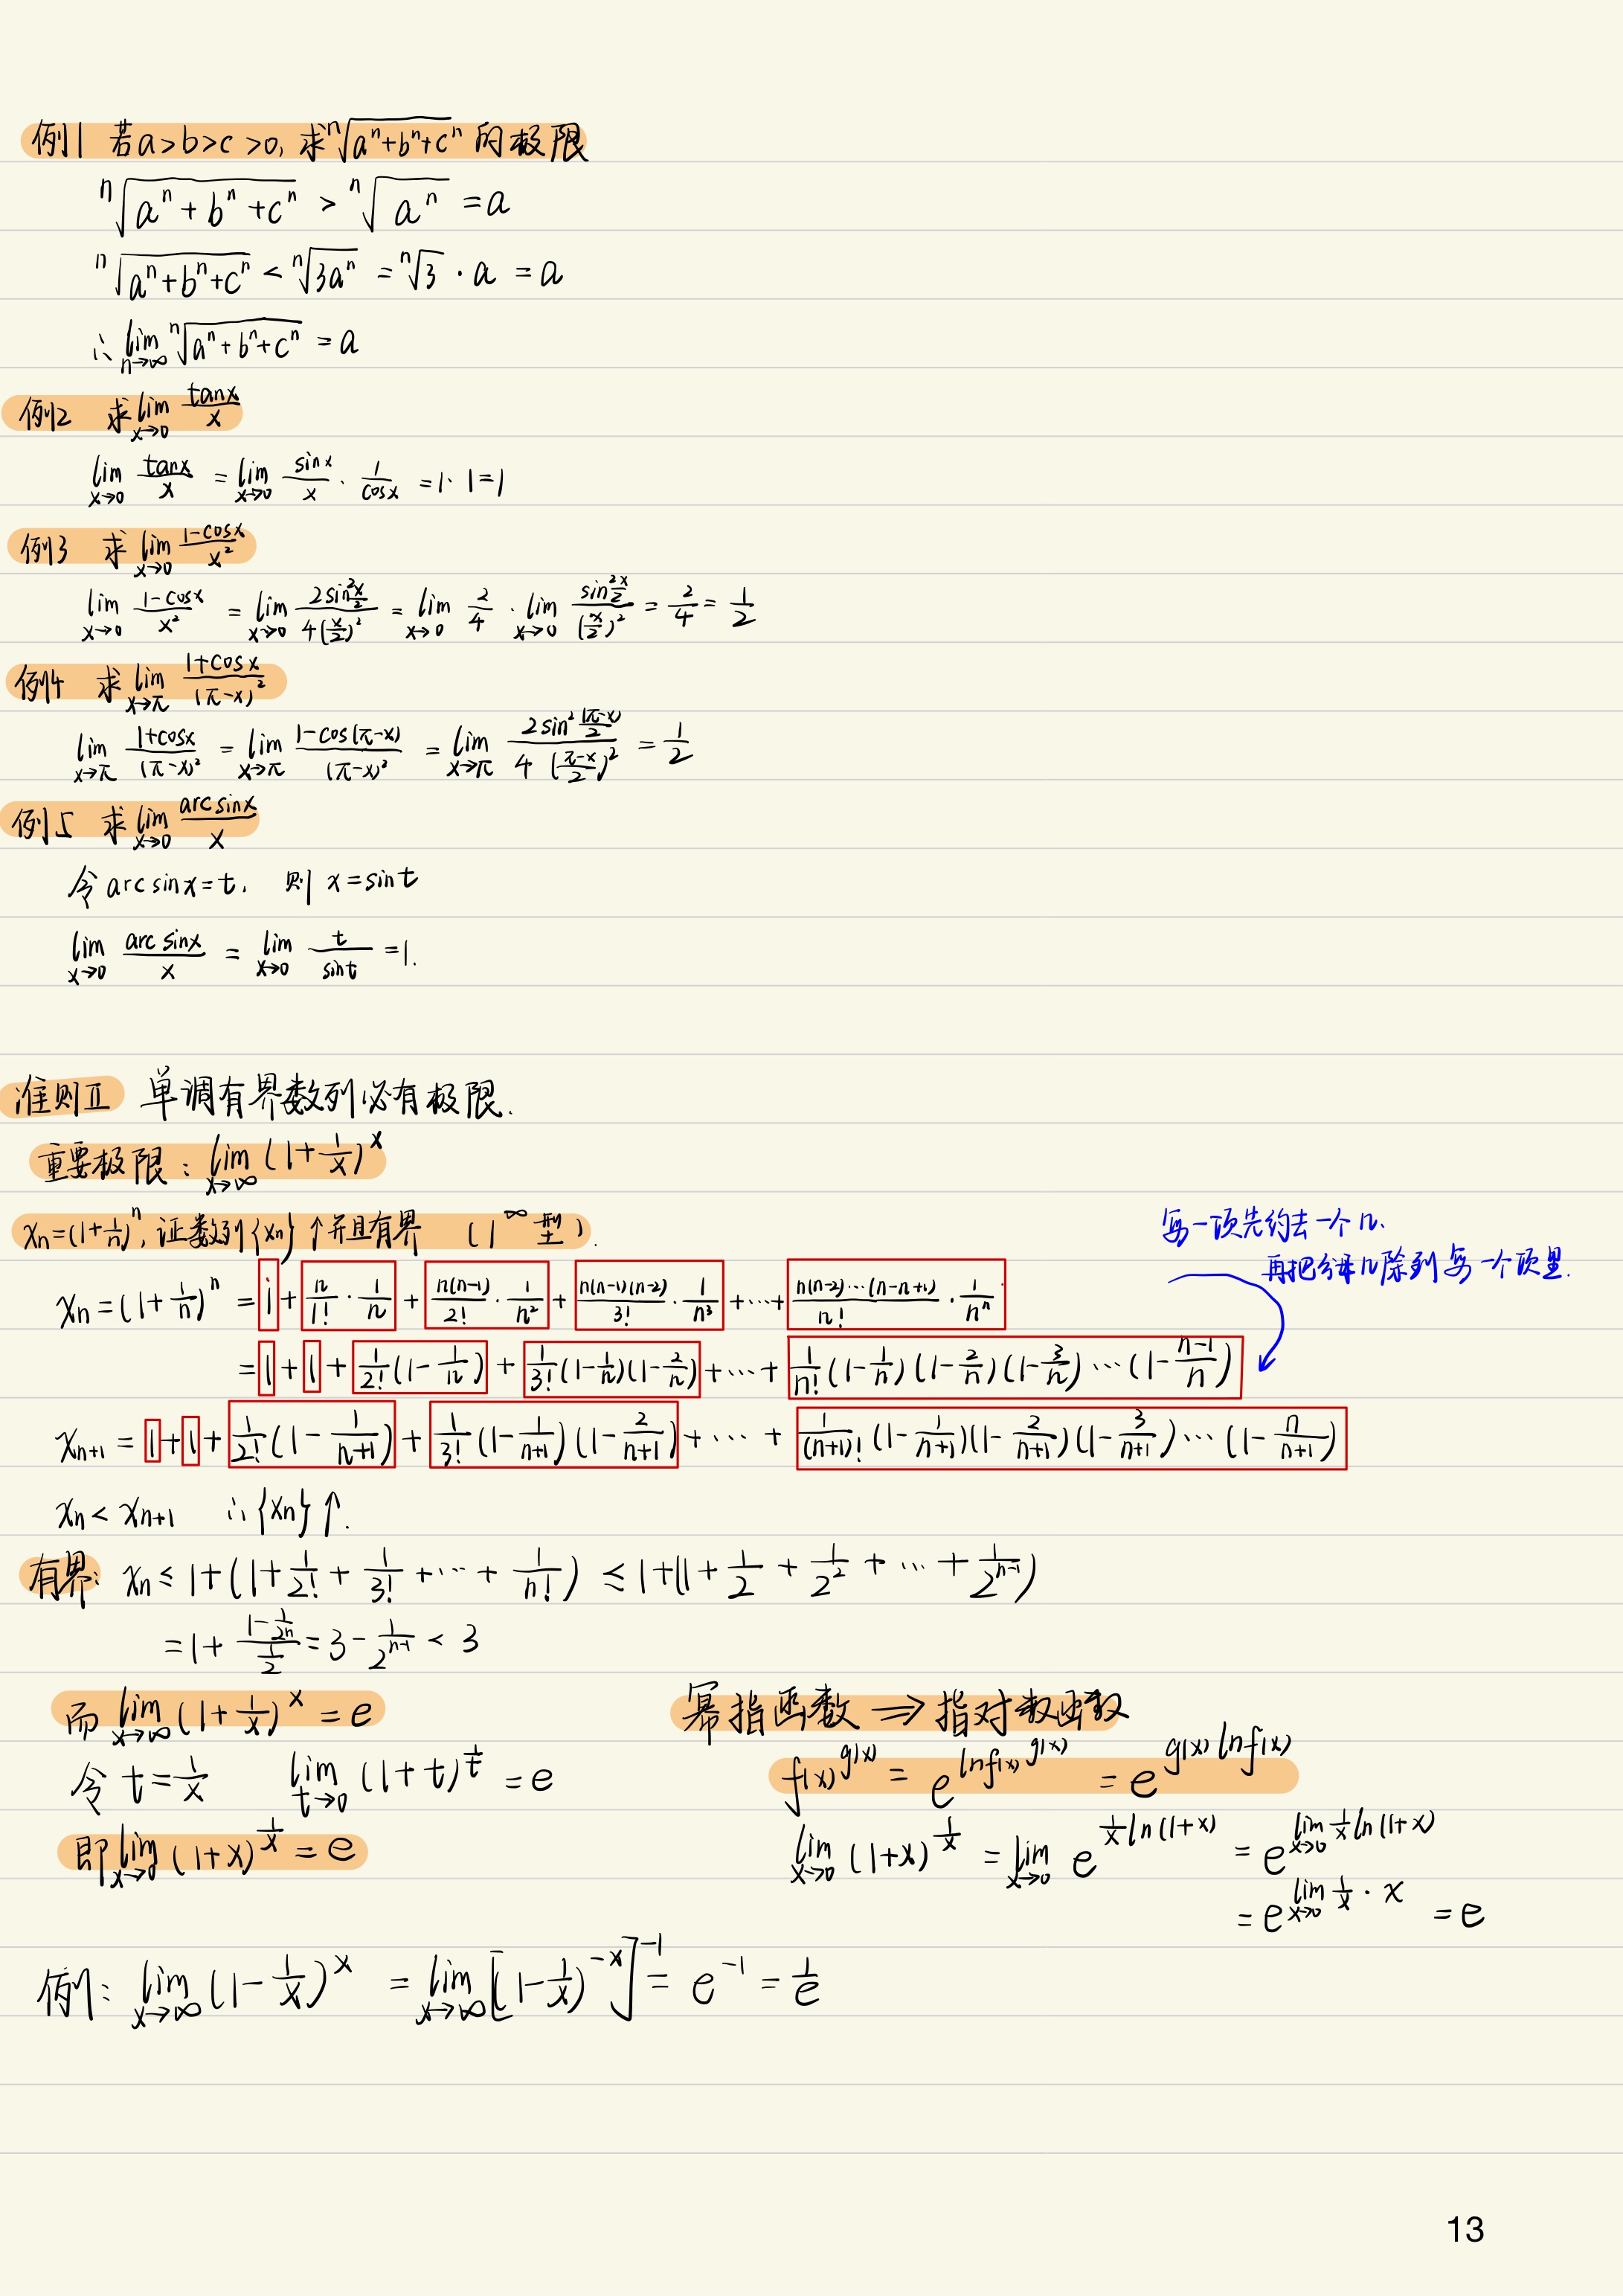 例1 若a>b>c>0, 求ⁿ√(aⁿ+bⁿ+cⁿ) 的极限
ⁿ√(aⁿ+bⁿ+cⁿ) > ⁿ√(aⁿ) = a
ⁿ√(aⁿ+bⁿ+cⁿ) < ⁿ√(3aⁿ) = ⁿ√3 · a = a
∴ lim_{n→∞} ⁿ√(aⁿ+bⁿ+cⁿ) = a
例2 求 lim_{x→0} tanx/x
lim_{x→0} tanx/x = lim_{x→0} sinx/x · 1/cosx = 1·1=1
例3 求 lim_{x→0} (1-cosx)/x²
lim_{x→0} (1-cosx)/x² = lim_{x→0} 2sin²(x/2)/(4(x/2)²) = lim_{x→0} 2/4 · lim_{x→0} sin²(x/2)/(x/2)² = 2/4 = 1/2
例4 求 lim_{x→π} (1+cosx)/(π-x)²
lim_{x→π} (1+cosx)/(π-x)² = lim_{x→π} (1-cos(π-x))/(π-x)² = lim_{x→π} 2sin²((π-x)/2)/(4((π-x)/2)²) = 1/2
例5 求 lim_{x→0} arcsinx/x
令arcsinx=t, 则 x=sint
lim_{x→0} arcsinx/x = lim_{x→0} t/sint = 1.
准则Ⅱ 单调有界数列必有极限.
重要极限: lim_{x→∞} (1+1/x)^x
xn=(1+1/n)^n, 证数列{xn}↑并且有界 (1^∞型).
每一项先约去一个n.
再把分母n除到每一个项里.
xn = (1+1/n)^n = 1 + n/1! · 1/n + n(n-1)/2! · 1/n² + n(n-1)(n-2)/3! · 1/n³ + ⋯ + n(n-2)⋯(n-n+1)/n! · 1/nⁿ
= 1 + 1 + 1/2!(1-1/n) + 1/3!(1-1/n)(1-2/n) + ⋯ + 1/n!(1-1/n)(1-2/n)(1-3/n)⋯(1-(n-1)/n)
xn+1 = 1+1+ 1/2!(1-1/(n+1)) + 1/3!(1-1/(n+1))(1-2/(n+1)) + ⋯ + 1/(n+1)!(1-1/(n+1))(1-2/(n+1))(1-3/(n+1))⋯(1-n/(n+1))
xn < xn+1 ∴{xn}↑.
有界: xn ≤ 1+(1+1/2!+1/3!+⋯+1/n!) ≤ 1+(1+1/2+1/2²+⋯+1/2^(n-1))
= 1+ (1-1/2ⁿ)/(1/2) = 3 - 1/2^(n-1) < 3
而 lim_{x→∞} (1+1/x)^x = e
令 t=1/x lim_{t→0} (1+t)^(1/t) = e
即 lim_{x→0} (1+x)^(1/x) = e
幂指函数 ⟹ 指对数函数
f(x)^g(x) = e^(lnf(x)^g(x)) = e^(g(x) lnf(x))
lim_{x→0} (1+x)^(1/x) = lim_{x→0} e^(1/x ln(1+x)) = e^(lim_{x→0} 1/x ln(1+x))
= e^(lim_{x→0} 1/x · x) = e
例: lim_{x→∞} (1-1/x)^x = lim_{x→∞} [(1-1/x)^(-x)]^(-1) = e^(-1) = 1/e
13